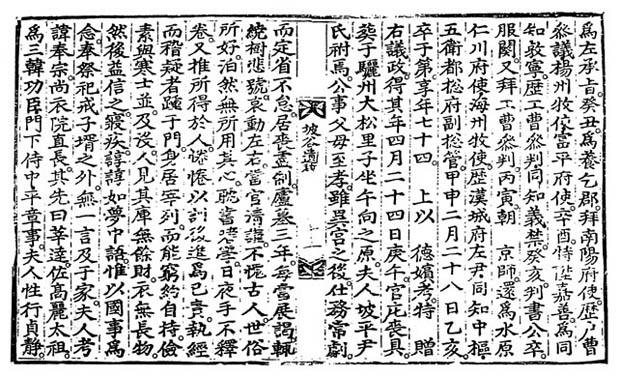 爲左承旨癸丑爲養乞郡拜南陽府使歷戶曹
參議楊州牧伯富平府使辛酉特陞嘉善爲同
知敦寧歷工曹參判同知義禁癸亥判書公卒
服闋又拜工曹參判丙寅朝 京師還爲水原
仁川府使海州牧使歷漢城府左尹同知中樞
五衛都摠府副摠管甲申二月二十八日乙亥
卒于第享年七十四 上以 德嬪考特 贈
右議政得其年四月二十四日庚午官庀喪具
葬于驪州大松里子坐午向之原夫人坡平尹
氏祔焉公事父母至孝雖異宮之後仕務常劇
坡谷遺稿
而定省不怠居喪盡制廬墓三年每當展謁輒
繞樹悲號哀動左右當官淸謹不愧古人世俗
所好泊然無所用其心書老學日夜手不釋
卷又推所得於人惓惓以訓後進爲己責執經
而稽疑者踵于門身居宰列而能窮約自持儉
素與寒士並及沒人見其庫無餘財衣無長物
然後益信之寢疾諄諄如夢中語惟以國事爲
念奉祭祀戒子壻之外無一言及于家夫人考
諱奉宗尙衣院直長其先曰莘達佐高麗太祖
爲三韓功臣門下侍中平章事夫人性行貞靜